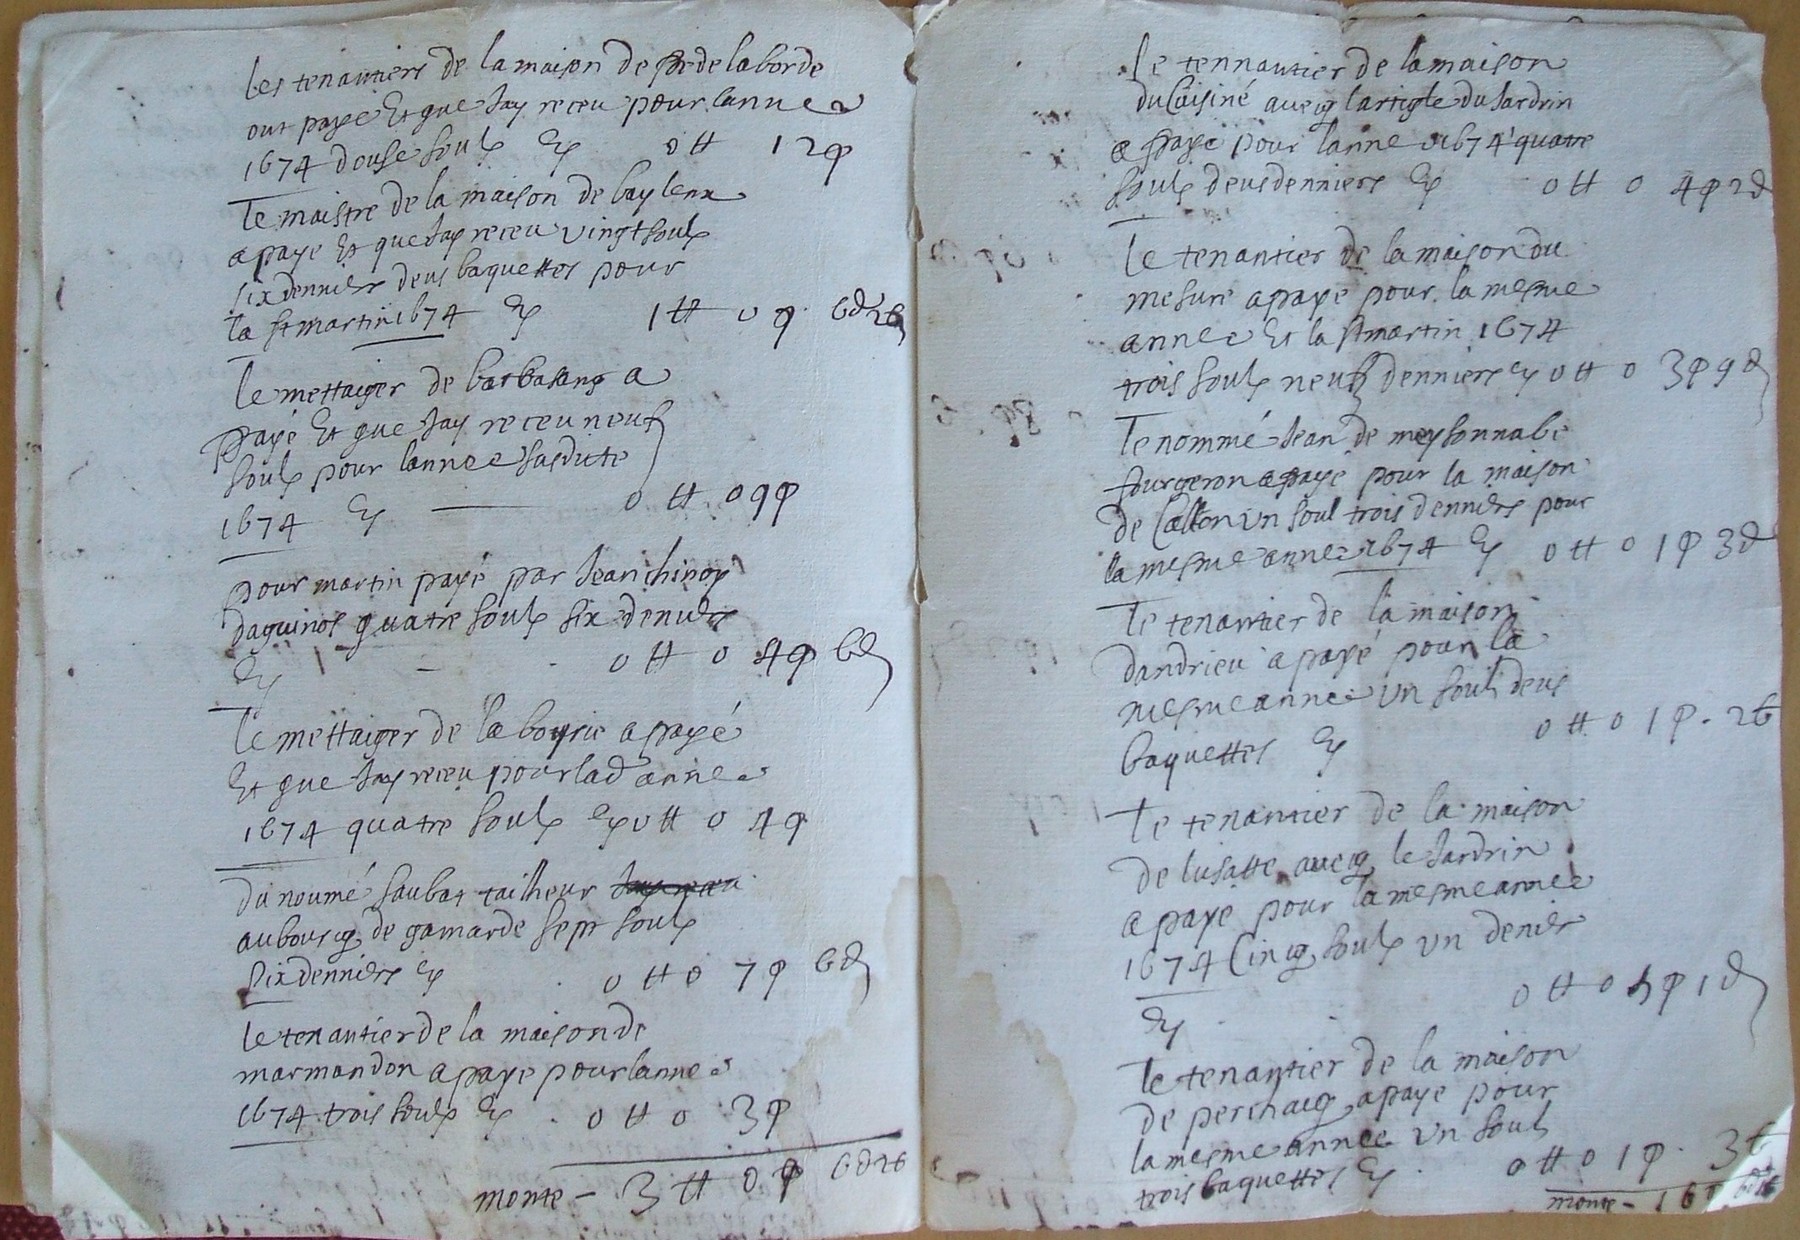 les tenantiers de la maison de de laborde
ont paye Et que Jay receu pour lannee
1674 douse souls Cy 0 ʜ 12 ꝑ
Le maistre de la maison de baylenx
a paye Et que Jay receu vingt souls
six denniers deus baquettes pour
la st martin 1674 Cy 1 ʜ 0 ꝑ 6d 2b
Le mettaiger de barbasang a
payé Et que Jay receu neuf
souls pour lannee susditte
1674 Cy 0 ʜ 0 9ꝑ
pour martin payé par Jean chinoy
daguinos quatre souls six deniers
Cy 0 ʜ 0 4ꝑ 6d
Le mettaiger de la boyrie a payé
Et que Jay receu pour lad annee
1674 quatre souls Cy 0 ʜ 0 4ꝑ
du noumé saubat tailheur
au bourcq de gamarde sept souls
six denniers Cy 0 ʜ 0 7ꝑ 6d
Le tenantier de la maison de
marmandon a paye pour lannee
1674 trois souls Cy 0 ʜ 0 3ꝑ
monte - 3 ʜ 0 ꝑ 6d 2b
Le tennantier de la maison
du Cuisiné avecq lartigle du Jardrin
a paye pour lannee 1674 quatre
souls deus denniers Cy 0 ʜ 0 4ꝑ 2d
Le tenantier de la maison du
mesure a paye pour la mesme
annee Et la st martin 1674
trois souls neuf denniers Cy 0 ʜ 0 3ꝑ 9d
Le nommé Jean de meysonnabe
fourgeron a payé pour la maison
de Catton un soul trois denniers pour
la mesme annee 1674 Cy 0 ʜ 0 1ꝑ 3d
Le tenantier de la maison
dandrieu a payé pour la
mesme annee un souls deus
baquettes Cy 0 ʜ 0 1ꝑ. 2b
Le tenantier de la maison
de lusatte avecq le Jardrin
a paye pour la mesme annee
1674 Cincq souls un denier
Cy 0 ʜ 0 5ꝑ 1d
Le tenantier de la maison
de perchaicq a paye pour
la mesme annee un souls
trois baquettes Cy 0 ʜ 0 1ꝑ. 3b
monte - 16ꝑ